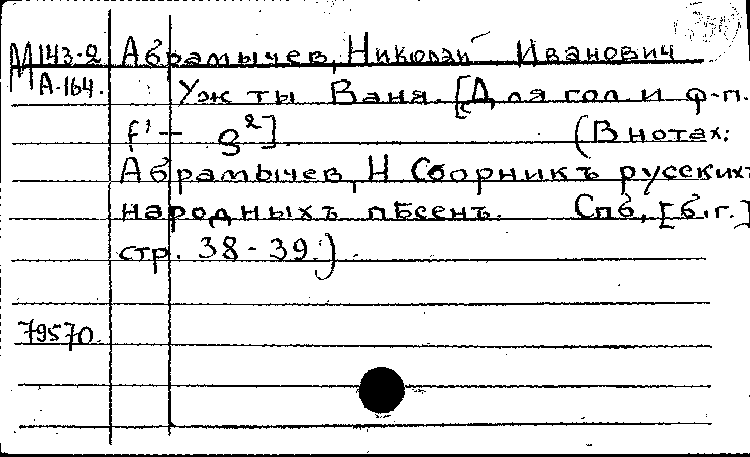 М 143-2 Абрамычев, Николай Иванович
А-164.
Уж ты Ваня. [Для гол. и ф-п.
f¹ – g²]. (В нотах:
Абрамычев, Н Сборникъ русскихъ
народныхъ пѣсенъ. Спб, [б.г.]
стр. 38-39.)
79570.